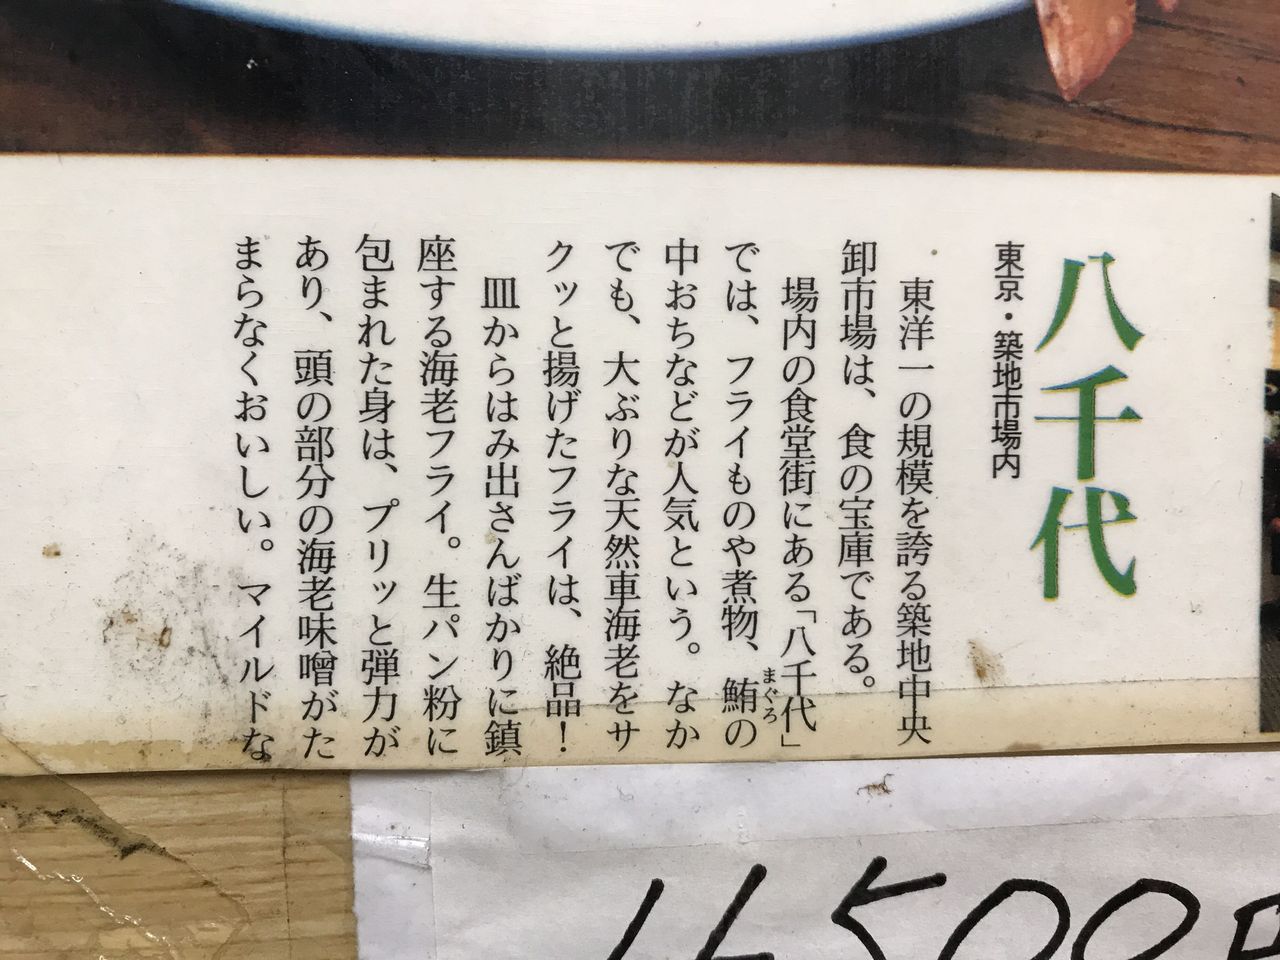 八千代
東京・築地市場内
東洋一の規模を誇る築地中央
卸市場は、食の宝庫である。
場内の食堂街にある「八千代」
では、フライものや煮物、鮪の
まぐろ
中おちなどが人気という。なか
でも、大ぶりな天然車海老をサ
クッと揚げたフライは、絶品！
皿からはみ出さんばかりに鎮
座する海老フライ。生パン粉に
包まれた身は、プリッと弾力が
あり、頭の部分の海老味噌がた
まらなくおいしい。マイルドな